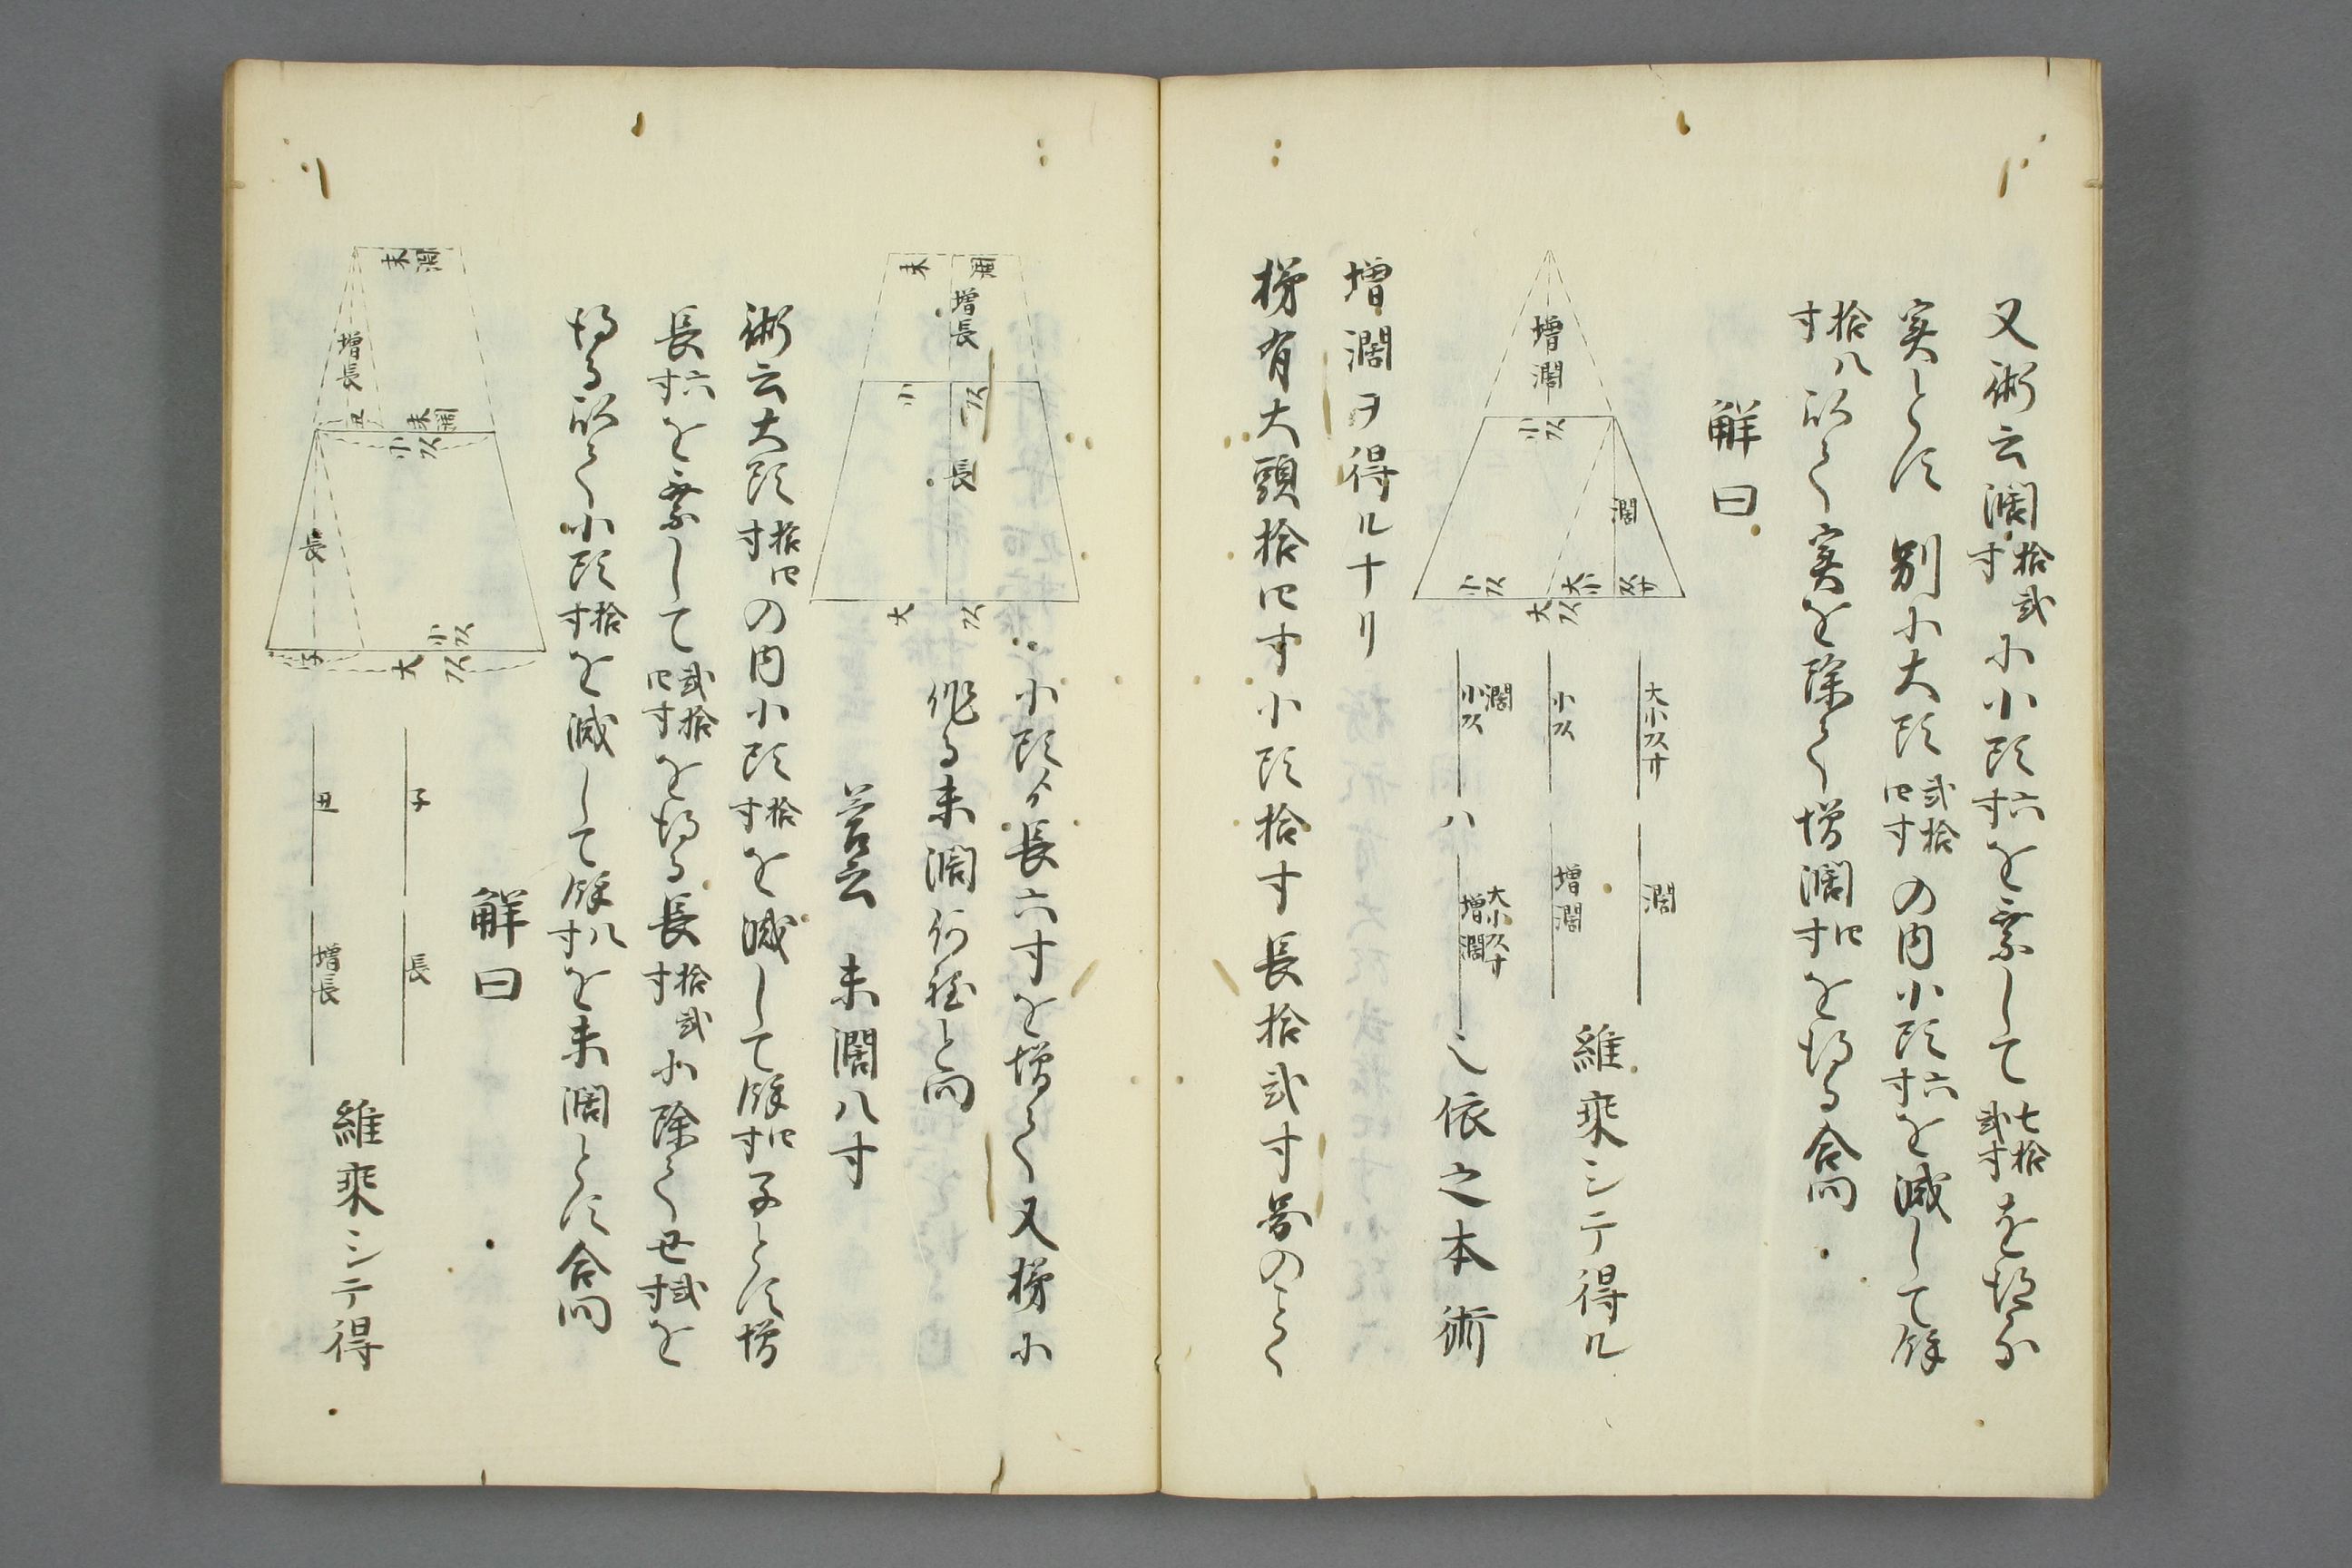 又術云濶拾弐寸小小頭六寸を乗して七拾弐寸を得る
実とす 別小大頭弐拾四寸の内小頭六寸を減して餘
拾八寸以て実を除て増濶四寸を得る合問
解曰
増濶
小頭
濶
小頭
大頭
大小頭
濶
小頭
増濶
維乗シテ得ル
濶
小頭
ハ
増濶
依之本術
増濶ヲ得ルナリ
梯有大頭拾四寸小頭拾寸長拾弐寸図のことく
小頭ゟ長六寸を増て又梯小
作る末濶何程と問
末濶
増長
小頭
長
大頭
答云 末濶八寸
術云大頭拾四寸の内小頭拾寸を減して餘四寸子とす増
長六寸を乗して弐拾四寸を得る長拾弐寸小除て丑弐寸を
得る以て小頭拾寸を減して餘八寸を末濶とす合問
解曰
末濶
増長
丑
末濶
小頭
長
小頭
子
大頭
子
長
丑
増長
維乗シテ得